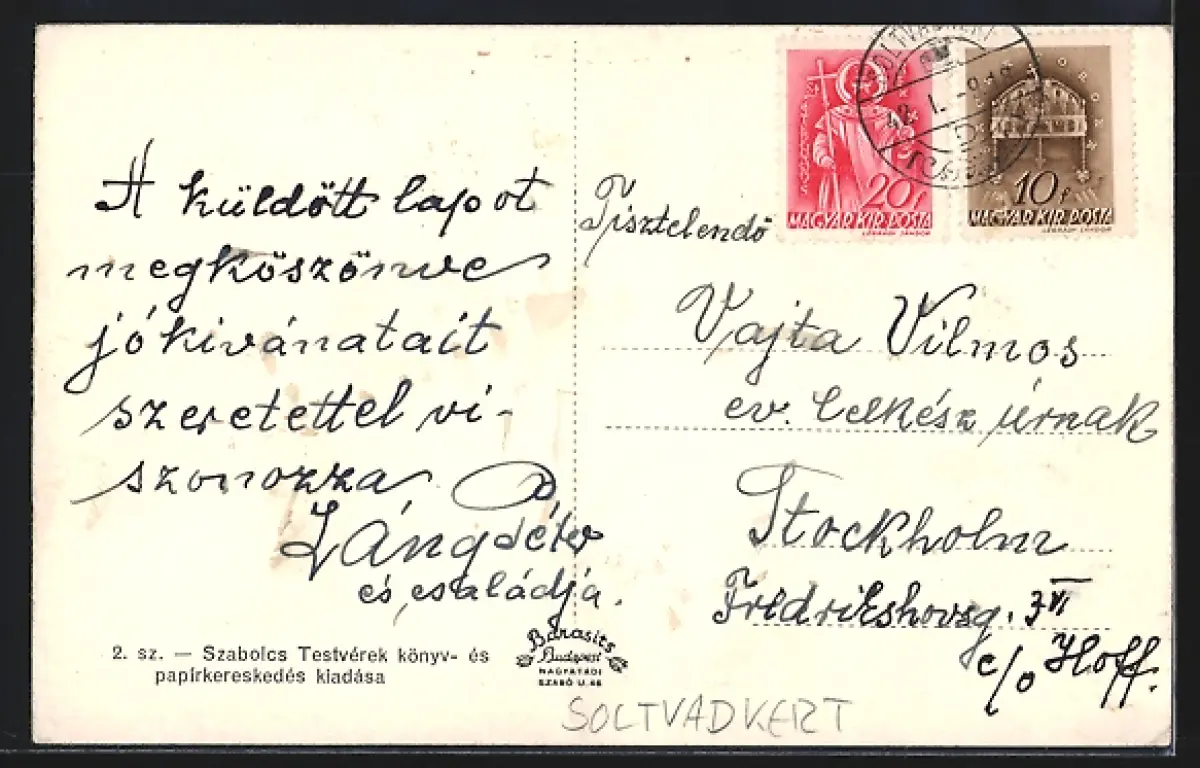 A küldött lapot
megköszönve
jókivánatait
szeretettel vi-
szonozza
Láng Péter
és családja.
2. sz. — Szabolcs Testvérek könyv- és
papírkereskedés kiadása
Barasits
Budapest
NAGYATÁDI
SZABÓ U. 46
SOLTVADKERT
20f
MAGYAR KIR. POSTA
LÉGRÁDY SÁNDOR
10f
MAGYAR KIR. POSTA
LÉGRÁDY SÁNDOR
SOLTVADKERT
42. I.
Tisztelendő
Vajta Vilmos
ev. lelkész úrnak
Stockholm
Fredrikshovsg. 3 VI
c/o Hoff.